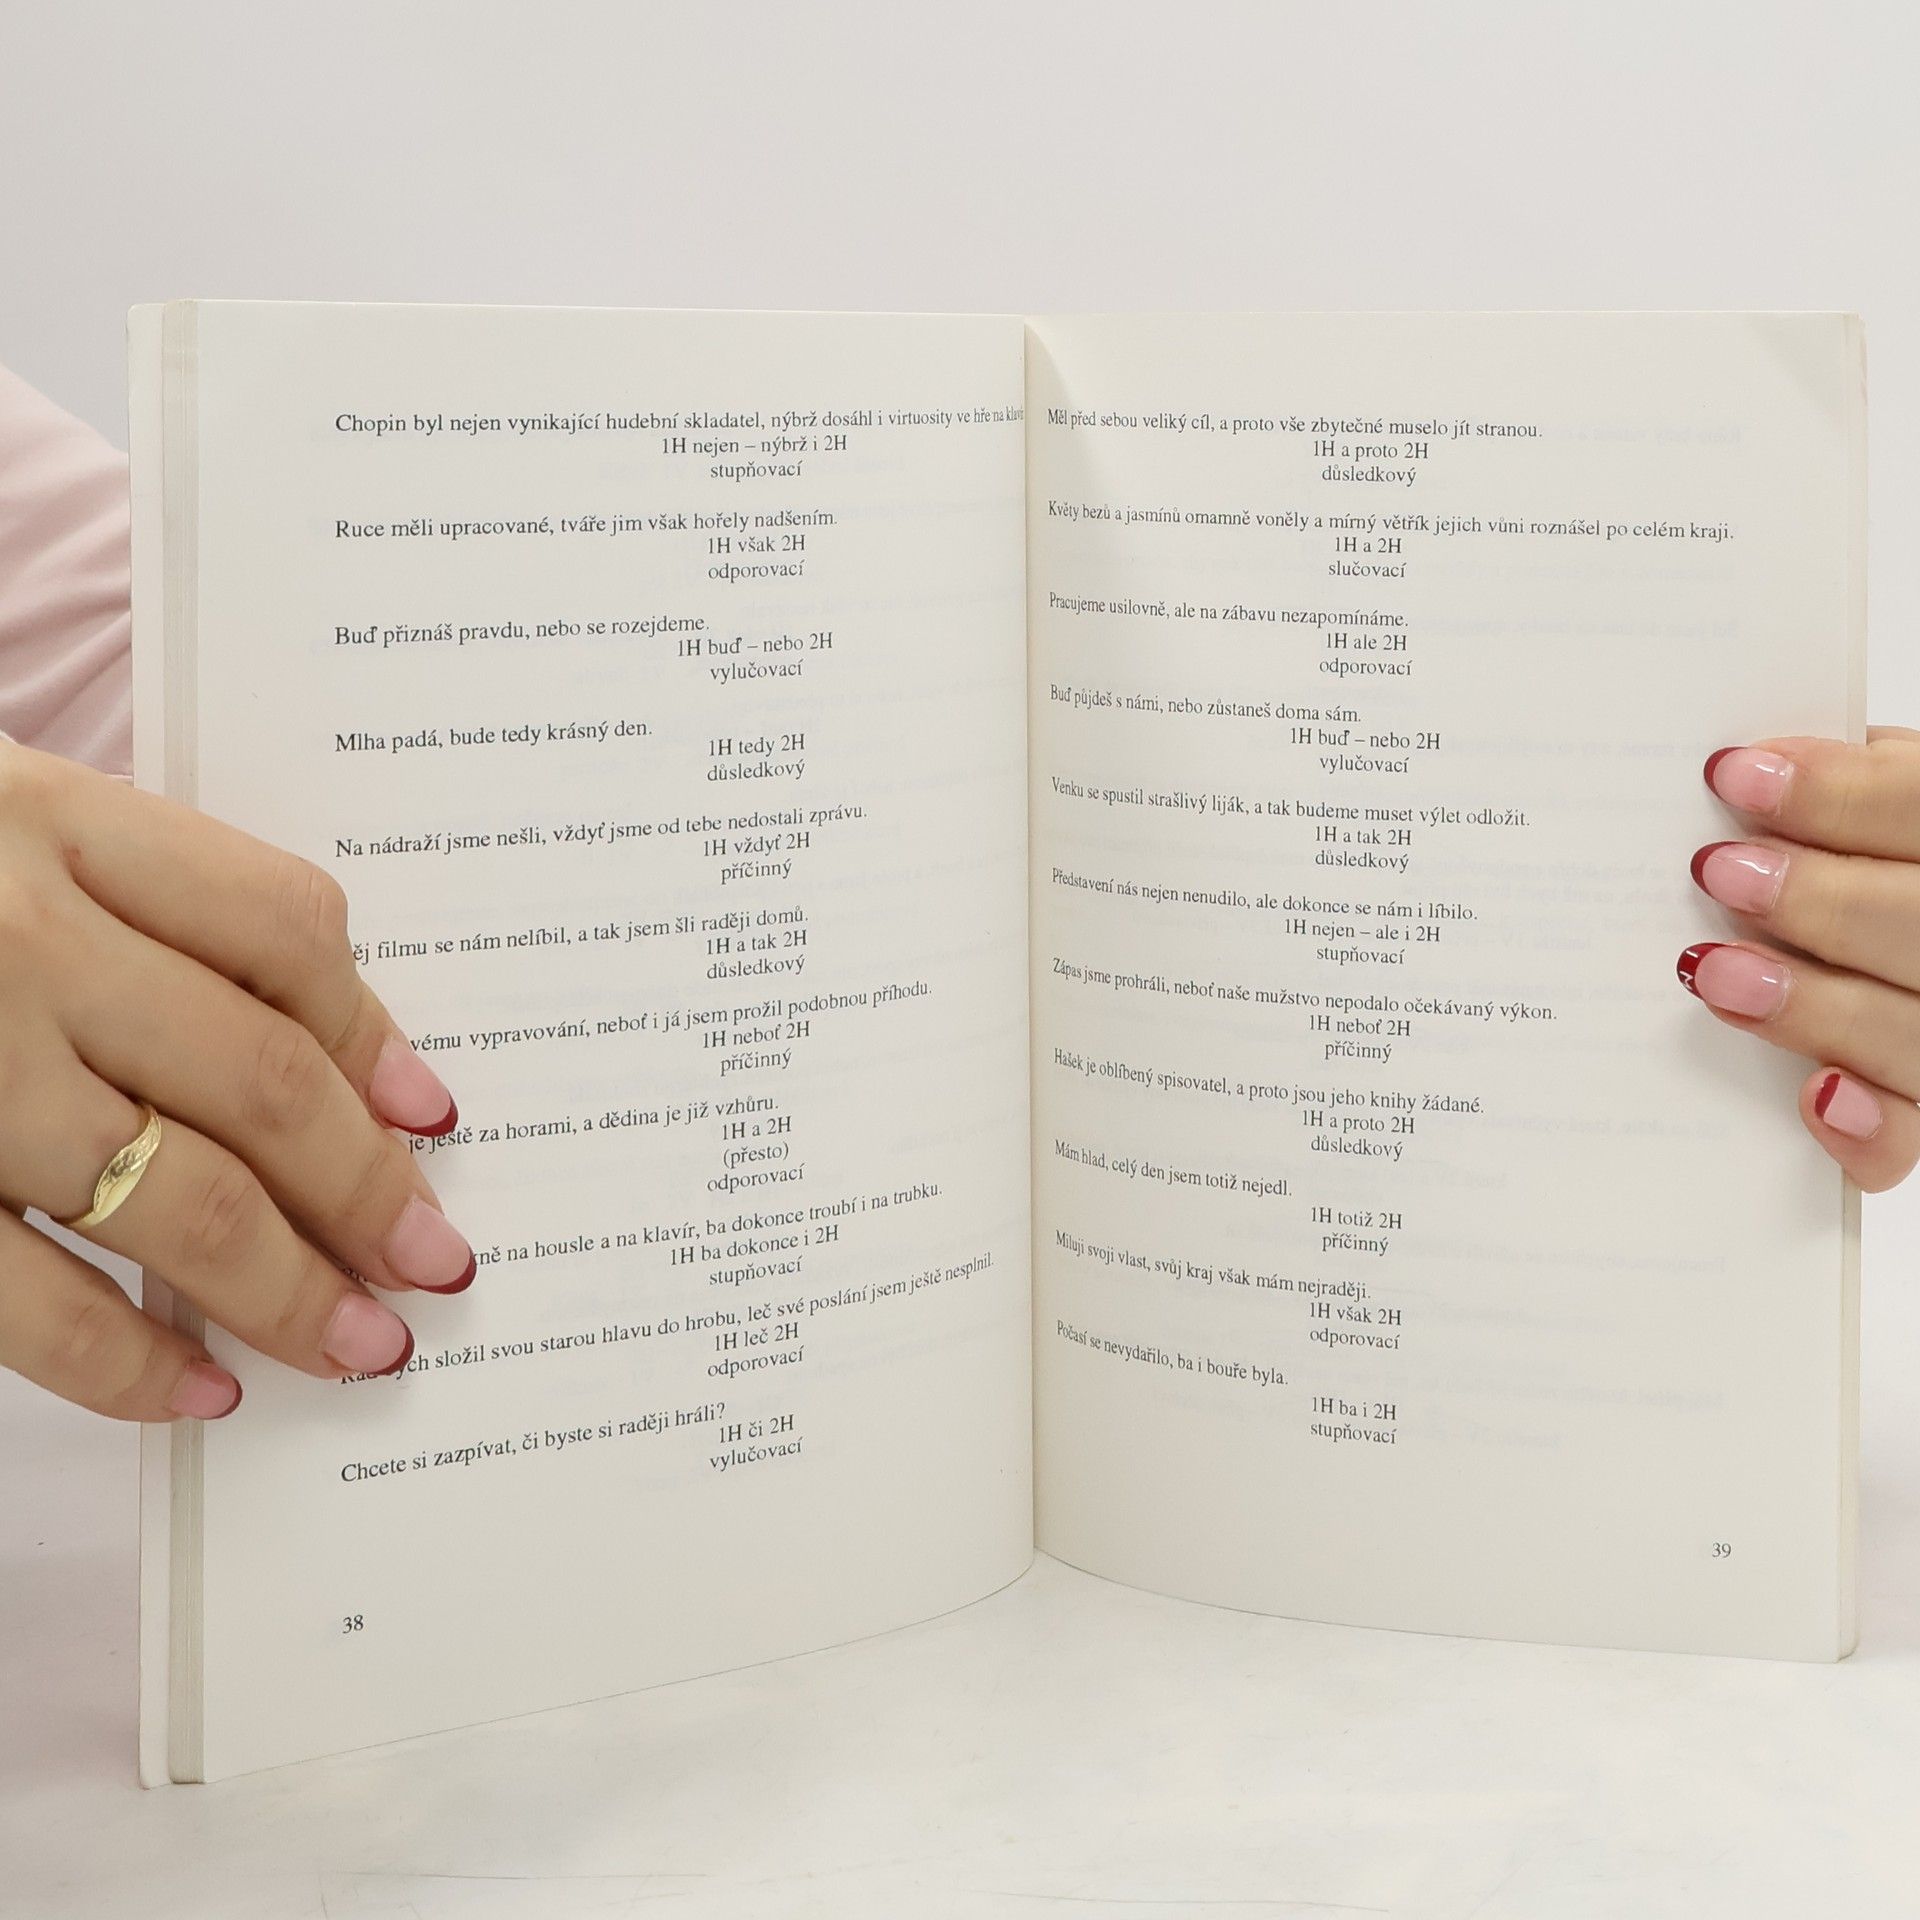 Chopin byl nejen vynikající hudební skladatel, nýbrž dosáhl i virtuosity ve hře na klavír
1H nejen – nýbrž i 2H
stupňovací
Ruce měli upracované, tváře jim však hořely nadšením.
1H však 2H
odporovací
Buď přiznáš pravdu, nebo se rozejdeme.
1H buď – nebo 2H
vylučovací
Mlha padá, bude tedy krásný den.
1H tedy 2H
důsledkový
Na nádraží jsme nešli, vždyť jsme od tebe nedostali zprávu.
1H vždyť 2H
příčinný
ěj filmu se nám nelíbil, a tak jsem šli raději domů.
1H a tak 2H
důsledkový
vému vypravování, neboť i já jsem prožil podobnou příhodu.
1H neboť 2H
příčinný
je ještě za horami, a dědina je již vzhůru.
1H a 2H
(přesto)
odporovací
kně na housle a na klavír, ba dokonce troubí i na trubku.
1H ba dokonce i 2H
stupňovací
ych složil svou starou hlavu do hrobu, leč své poslání jsem ještě nesplnil.
1H leč 2H
odporovací
Chcete si zazpívat, či byste si raději hráli?
1H či 2H
vylučovací
38
Měl před sebou veliký cíl, a proto vše zbytečné muselo jít stranou.
1H a proto 2H
důsledkový
Květy bezů a jasmínů omamně voněly a mírný větřík jejich vůni roznášel po celém kraji.
1H a 2H
slučovací
Pracujeme usilovně, ale na zábavu nezapomínáme.
1H ale 2H
odporovací
Buď půjdeš s námi, nebo zůstaneš doma sám.
1H buď – nebo 2H
vylučovací
Venku se spustil strašlivý liják, a tak budeme muset výlet odložit.
1H a tak 2H
důsledkový
Představení nás nejen nenudilo, ale dokonce se nám i líbilo.
1H nejen – ale i 2H
stupňovací
Zápas jsme prohráli, neboť naše mužstvo nepodalo očekávaný výkon.
1H neboť 2H
příčinný
Hašek je oblíbený spisovatel, a proto jsou jeho knihy žádané.
1H a proto 2H
důsledkový
Mám hlad, celý den jsem totiž nejedl.
1H totiž 2H
příčinný
Miluji svoji vlast, svůj kraj však mám nejraději.
1H však 2H
odporovací
Počasí se nevydařilo, ba i bouře byla.
1H ba i 2H
stupňovací
39